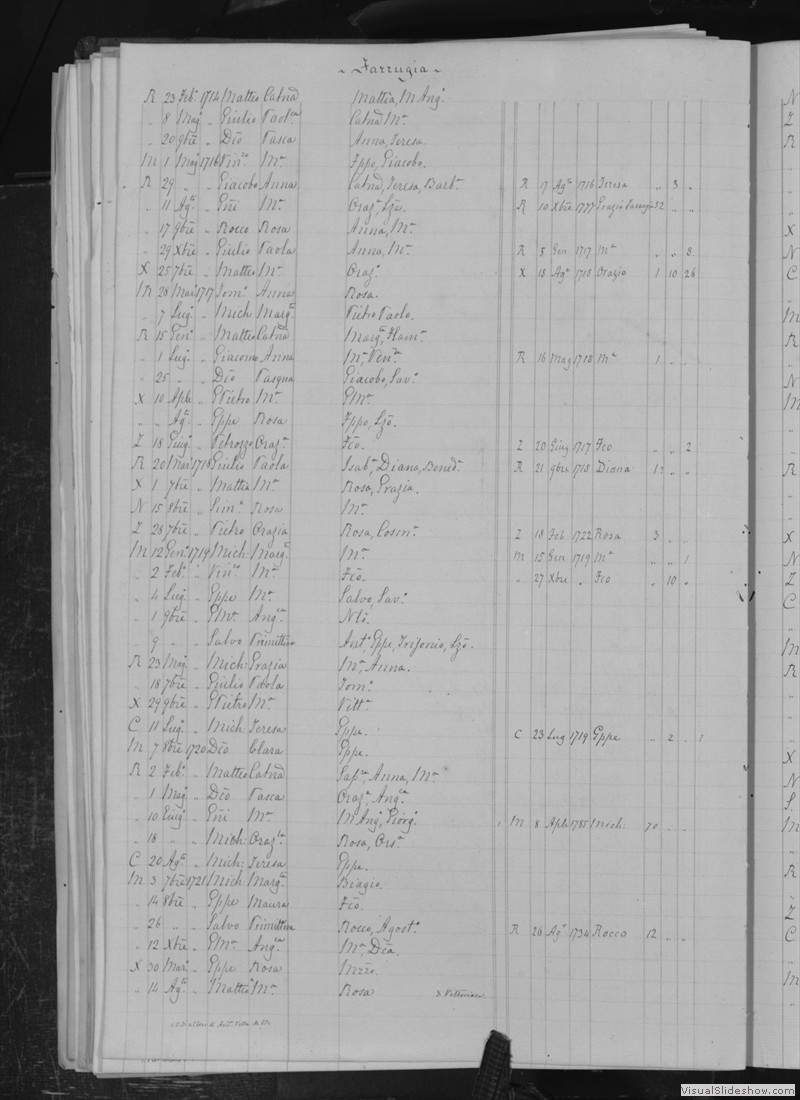 ~ Farrugia ~
R 23 Feb. 1714 Matteo Catna Mattia, M Ang.
" 8 Mag. " Giulio Paolca Catna Ma
" 20 9bre " Dco Pasca Anna, Teresa.
M 1 Mag 1716 Vinzo Ma Fppo, Giacobo.
R 29 " " Giacobo Anna Catna, Teresa, Barba R 17 Aga 1716 Teresa " 3 "
" 11 Aga " Gni Ma Oraza Lzo. R 10 Xbre 1777 Grazia
" 17 9bre " Rocco Rosa Anna, Ma
" 29 Xbre " Giulio Paola Anna, Ma R 5 Gen 1717 Ma " " 8
X 25 7bre " Matteo Ma Orazo X 18 Ago 1718 Orazio 1 10 26
M 28 Mar. 1717 Toma Anna Rosa.
" 7 Lug. " Mich: Marga Pietro Paolo.
R 15 Gen. " Matteo Catna Marga, Flama
" 1 Lug. " Giacomo Anna Ma, Vena R 16 Mag 1718 Ma 1 " "
" 25 " " Dco Pasqua Giacobo, Savo
X 10 Aple " GPietro Ma GMa
" " Aga " Gppe Rosa Fppo, Lzo.
Z 18 Giug. " Petrozzo Oraza Fco. Z 20 Giug 1717 Fco " " 2
R 20 Mar. 1718 Giulio Paola Isaba, Diana, Beneda R 21 9bre 1718 Diana 12 " "
X 1 7bre " Mattia Ma Rosa, Grazia.
N 15 8bre " Sima Rosa Ma
Z 28 7bre " Pietro Grazia Rosa, Cosma Z 18 Feb 1722 Rosa 3 " "
M 12 Gen. 1719 Mich: Marga Ma M 15 Gen 1719 Ma " " 1
" 2 Feb. " Vinzo Ma Fco. " 27 Xbre " Fco " 10 "
" 4 Lug. " Gppe Ma Salvo, Savo
" 1 9bre " GMa Angca Nlo.
" 9 " " Salvo Primittiva Anta, Gppe, Trifonio, Lzo.
R 23 Mag. " Mich: Grazia Ma, Anna.
" 18 7bre " Giulio Paola Toma
X 29 9bre " GPietro Ma Vitta
C 11 Lug. " Mich: Teresa Gppe. C 23 Lug 1719 Gppe " 2 "
M 7 8bre 1720 Dco Clara Gppe.
R 2 Feb. " Matteo Catna Sapa, Anna, Ma
" 1 Mag. " Dco Pasca Oraza, Angca
" 10 Giug. " Gni Ma M Ang, Giorg. M 8 Aple 1785 Mich: 70 " "
" 18 " " Mich: Oraza Rosa, Orsa
C 20 Aga " Mich: Teresa Gppe.
M 3 7bre 1721 Mich: Marga Biagio.
" 14 8bre " Gppe Maura Fco.
" 26 " " Salvo Primittiva Rocco, Agosta R 26 Aga 1734 Rocco 12 " "
" 12 Xbre " GMa Angca Ma, Dca.
X 30 Mar. " Gppe Rosa Nzzo.
" 14 Aga " Matteo Ma Rosa
VisualSlideshow.com